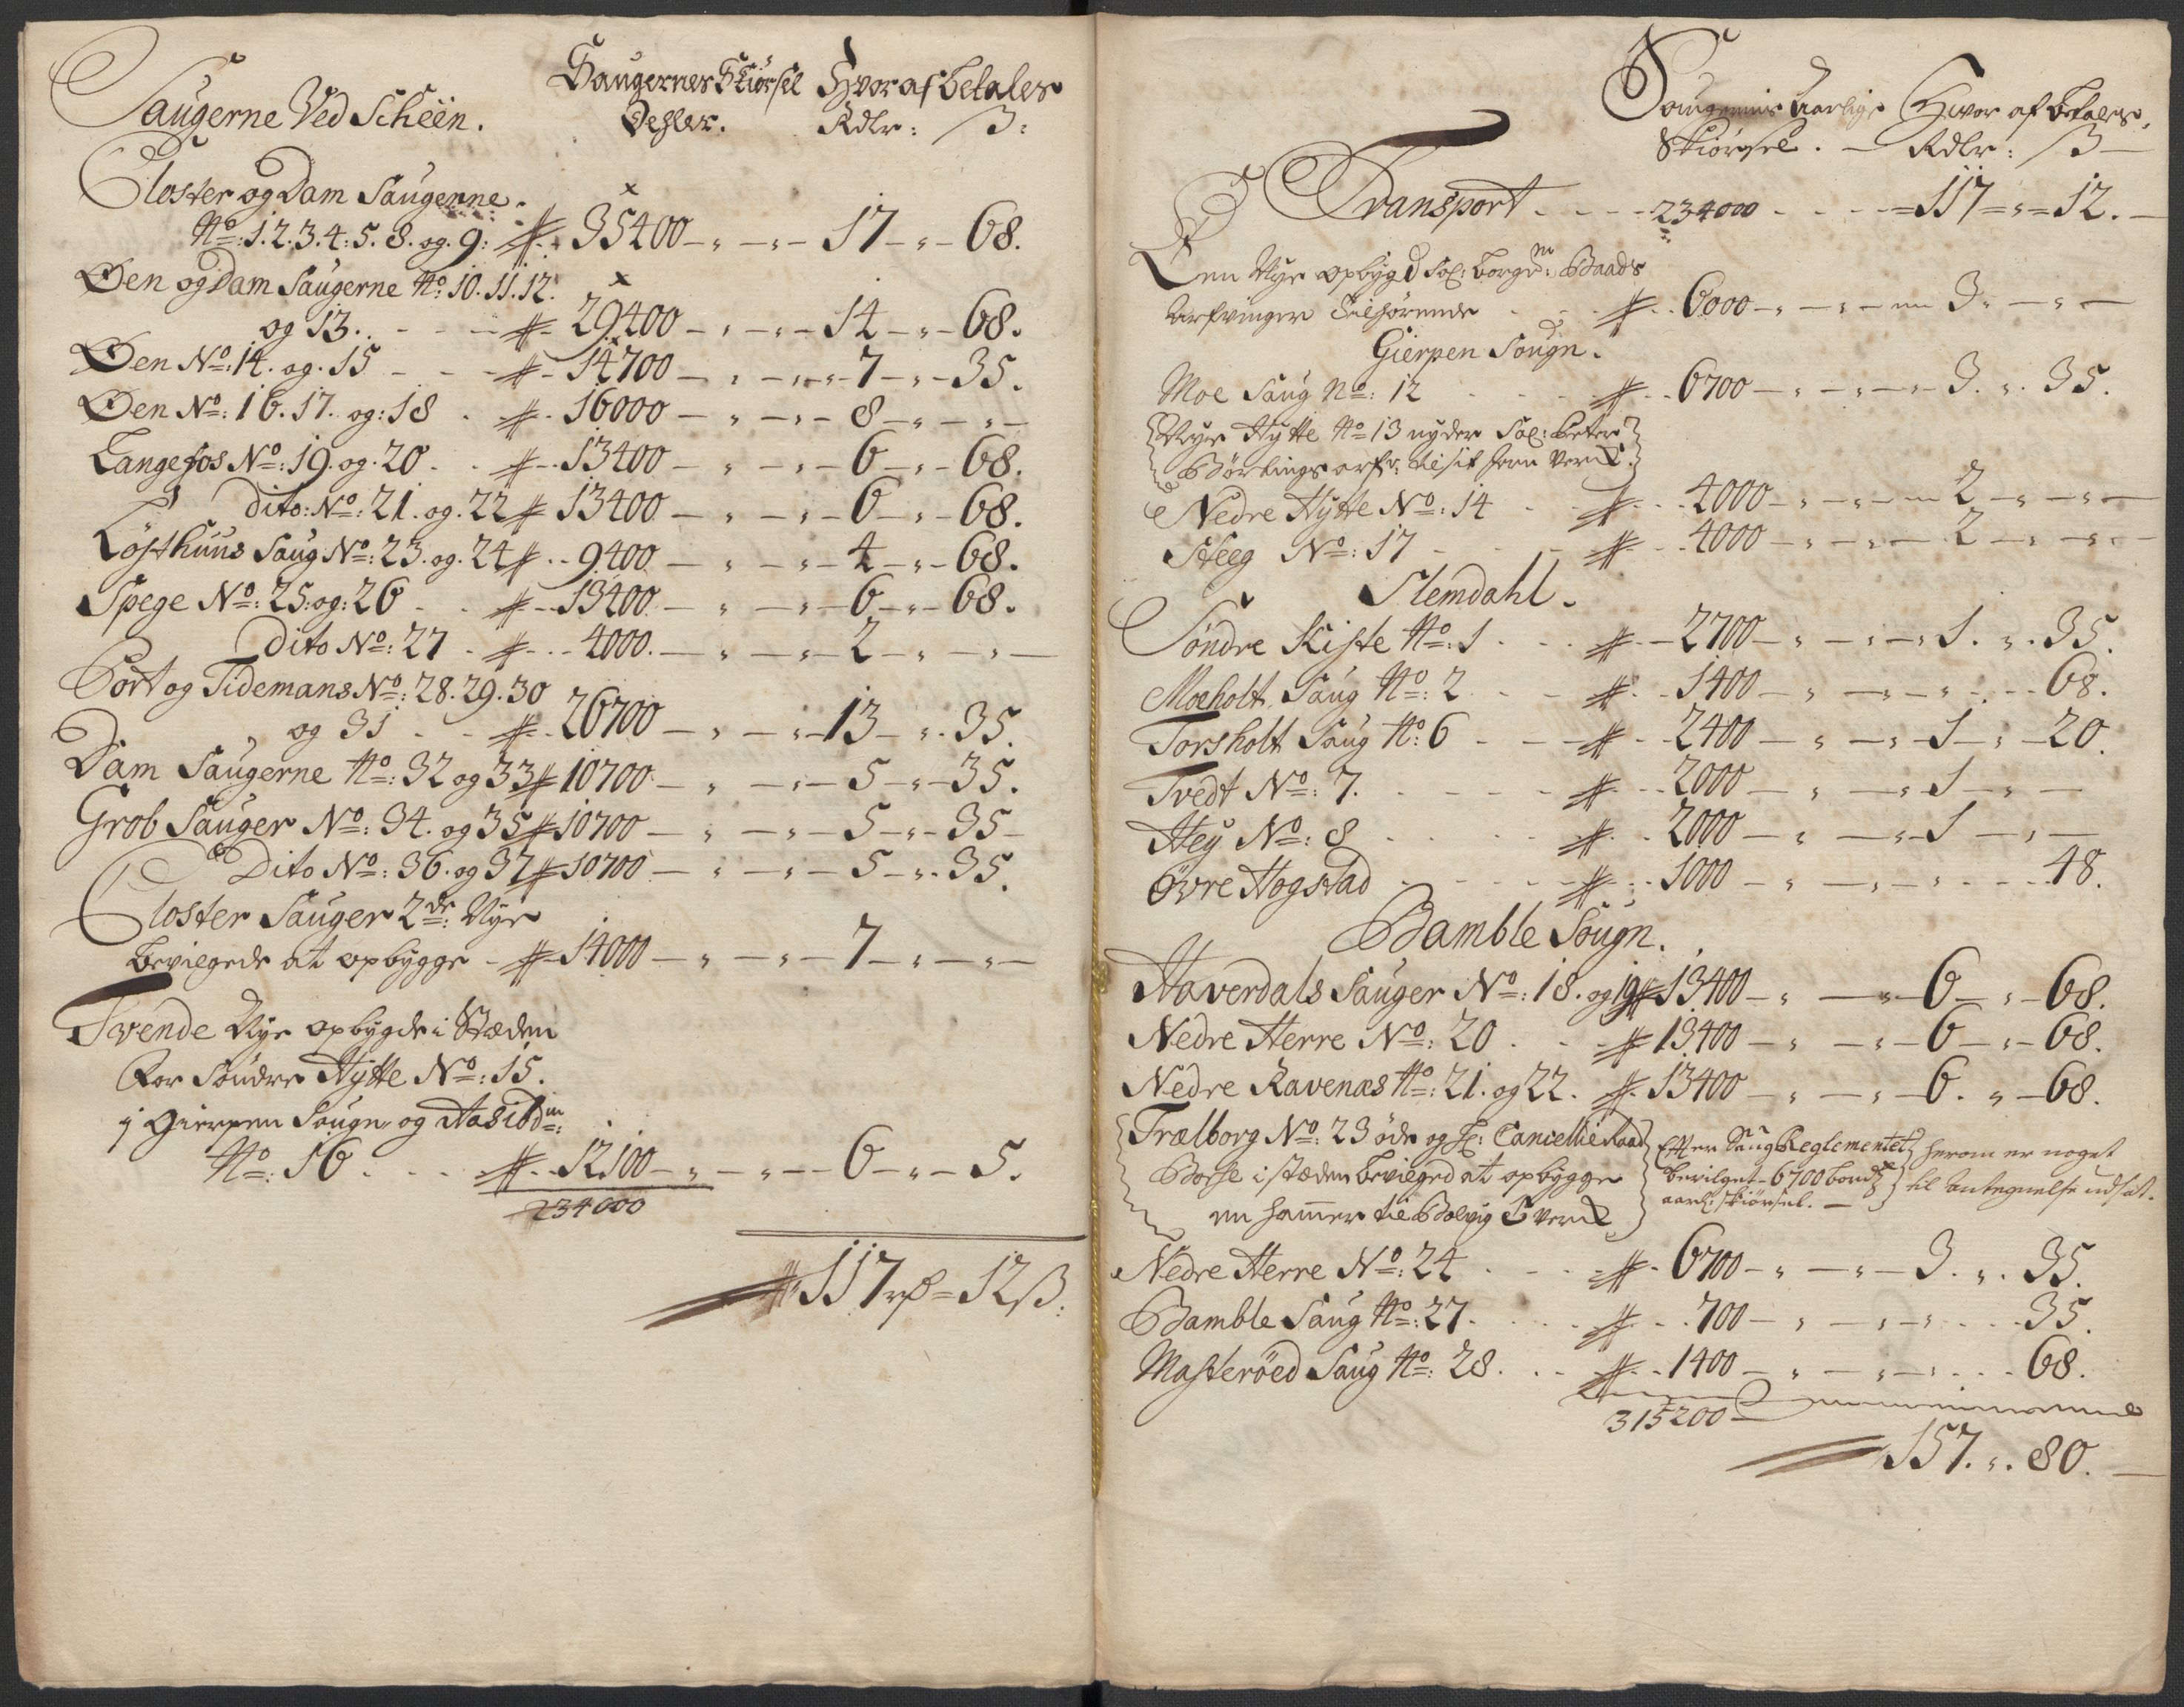 Saugerne Ved Scheen.
Saugernes Skiørsel
Dehler.
Hvor af betales
Rdlr: ß:
Closter og Dam Saugerne.
No: 1. 2. 3. 4: 5. 8. og. 9: 35400 17 68.
Øen og Dam Saugerne No: 10. 11. 12.
og 13. 29400 14 68.
Øen No: 14. og. 15 14700 7 35.
Øen No: 16. 17. og: 18 16000 8
Langefos No: 19. og. 20 13400 6 68.
Dito: No: 21. og. 22 13400 6 68.
Løsthuus Saug No: 23. og. 24 9400 4 68.
Spege No: 25: og: 26 13400 6 68.
Dito No: 27 4000. 2
Port og Tidemans No: 28. 29. 30
og 31 26700 13 35.
Dam Saugerne No: 32 og 33 10700 5 35.
Grob Sauger No: 34. og 35 10700 5 35
Dito No: 36. og 37 10700 5 35.
Closter Sauger 2de: Nye
bevilgede at opbygge 14000 7
Tvende Nye opbygde i Stæden
For Søndre Hytte No: 15.
i Gierpen Sougn og Aasild
No: 16 12100 6 5.
234000
117 rd 12 ß:
Saugernes Aarlige
Skiørsel.
Hvor af betales,
Rdlr: ß
Transport 234000 117 12.
Den Nye opbygd Sal: Borgem: Baads
Arfvinger Tilhørende 6000 3
Gierpen Sougn.
Moe Saug No: 12 6700 3. 35.
Nye Hytte No 13 nyder Sal: Peter
Børtings arfv: til sit Jern Verck.
Nedre Hytte No: 14 4000 2
Steeg No: 17 4000 2
Slemdahl.
Søndre Kiste No: 1 2700 1. 35.
Moeholt Saug No: 2 1400 68.
Torsholt Saug No: 6 2400 1 20.
Tvedt No: 7. 2000 1
Hey No: 8 2000 1
Øvre Hogstad 1000 48.
Bamble Sougn.
Haverdals Sauger No: 18. og 19 13400 6 68.
Nedre Herre No: 20 13400 6 68.
Nedre Ravenæs No: 21. og 22. 13400 6. 68.
Trælborg No: 23 øde og Hr: Cancellie Raad
Borse i stæden bevilged at opbygge
en hammer til Bolvig Verck
Efter Saug Reglementet
bevilget 6700 bord
aarl: skiørsel.
herom er noget
til Antegnelse udsat.
Nedre Herre No: 24 6700 3. 35.
Bamble Saug No: 27. 700 35.
Masterøed Saug No: 28. 1400 68.
315200
157. 80.